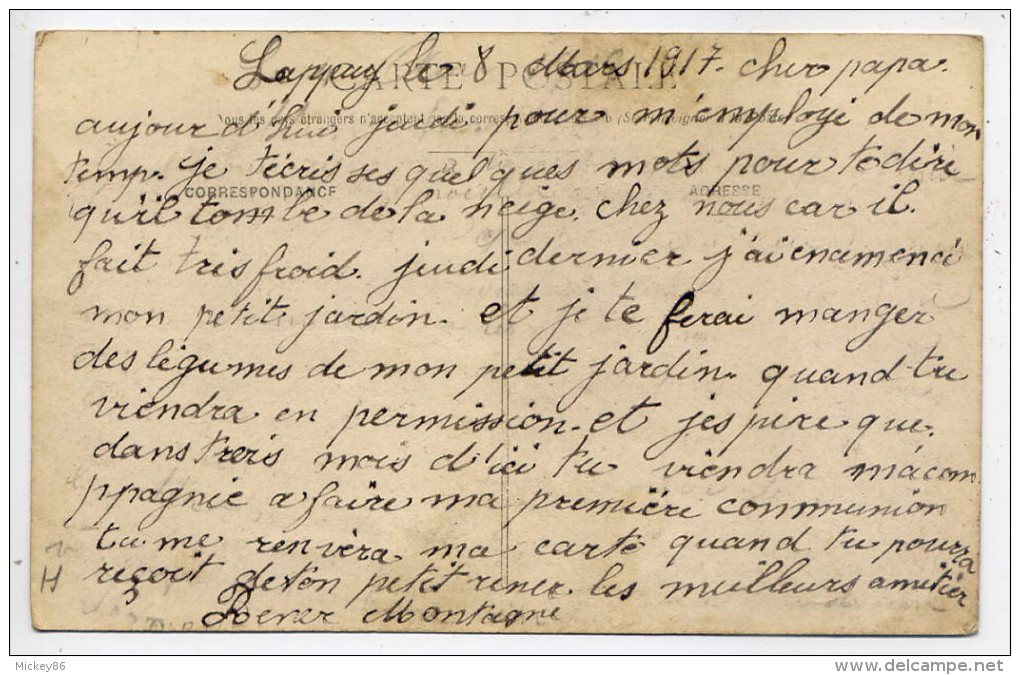 Lappuy le 8 Mars 1917. cher papa.
CARTE POSTALE
aujour d'hui jeudi pour m'employe de mon
Tous les pays étrangers n'acceptent pas la correspondance au
temp. je t'écris ses quel ques mots pour te dire
CORRESPONDANCE ADRESSE
qu'il tombe de la neige. chez nous car il.
fait tris froid. jeudi dernier j'ai enamené
mon petit jardin. et je te ferai manger
des légumes de mon petit jardin. quand tu
viendra en permission. et jes pire que.
dans trois mois d'ici tu viendra m'acom
ppagnie a faire ma première communion
tu me renvèra. ma carte quand tu pourra
reçoit deton petit rener les meilleurs amitier
H
Rener Montagne
Mickey86
delcampe.net